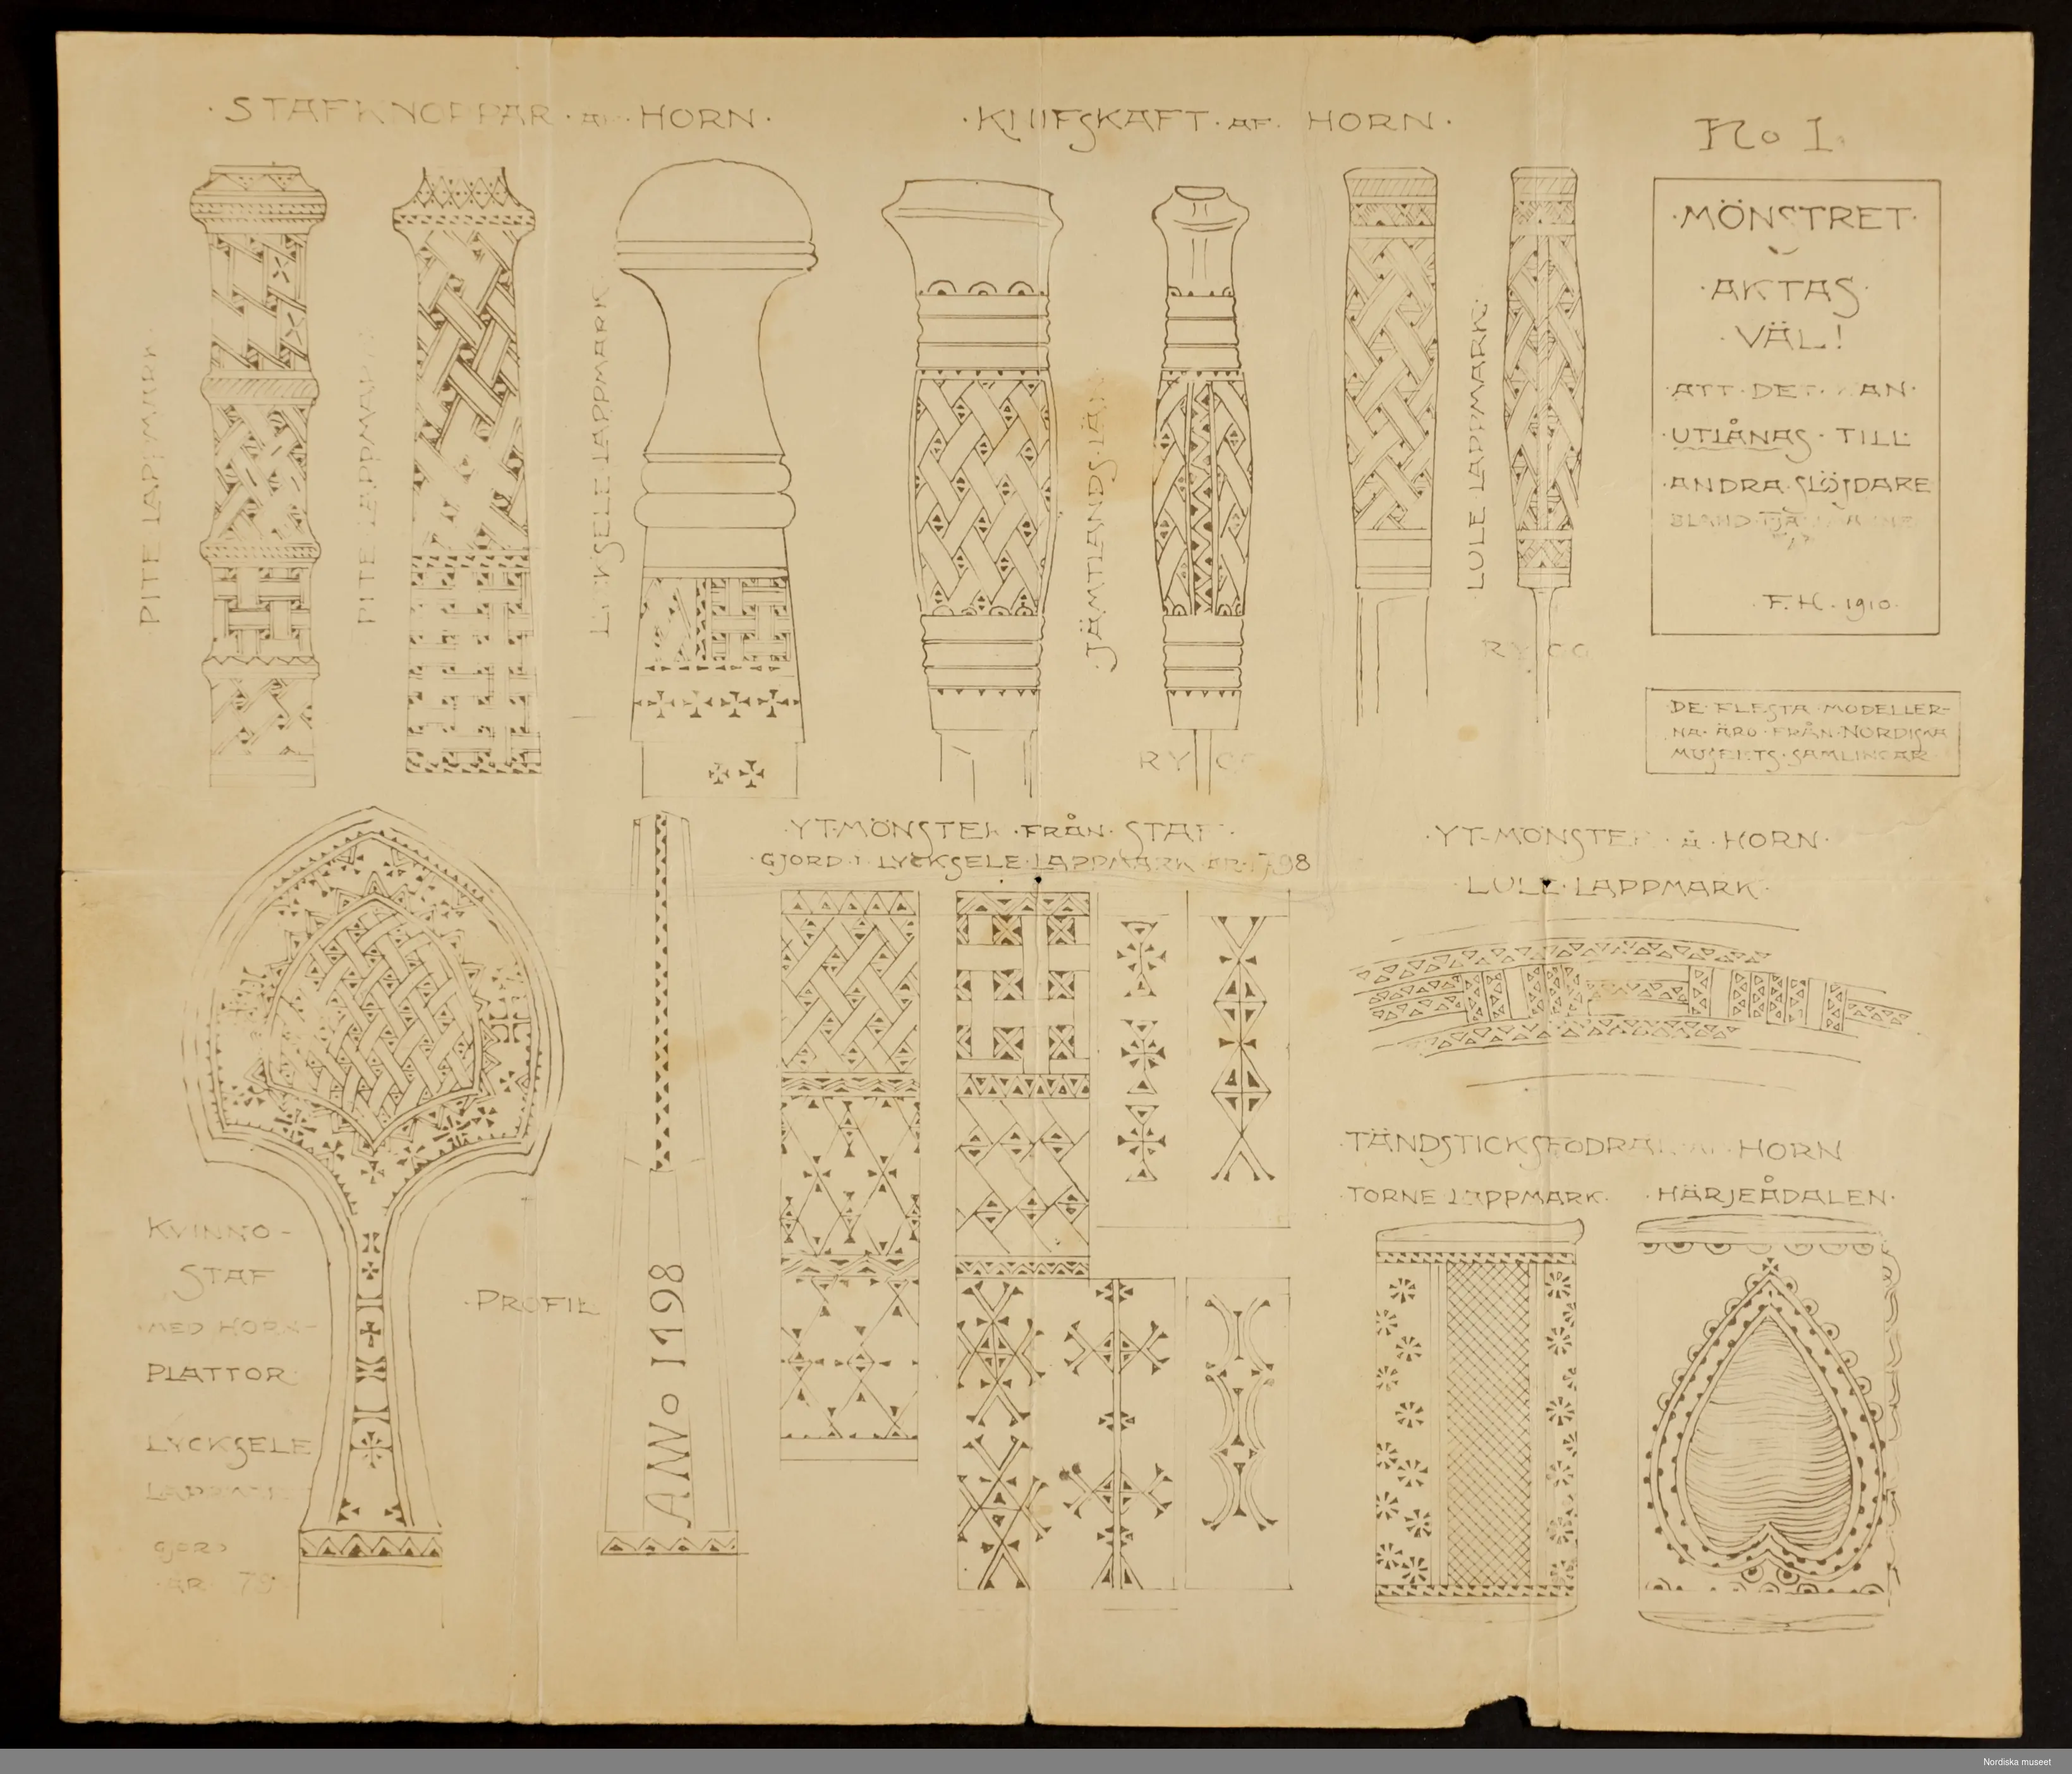 ·STAFKNOPPAR·AF·HORN·
·KNIFSKAFT·AF·HORN·
No I.
PITE LAPPMARK
PITE LAPPMARK
LYCKSELE LAPPMARK
·JÄMTLANDS·LÄN
LULE LAPPMARK·
·MÖNSTRET·
·AKTAS·
·VÄL!
·ATT·DET·KAN·
·UTLÅNAS·TILL·
·ANDRA·SLÖJDARE
BLAND
·F.H.·1910·
RYGG
RYGG
·DE·FLESTA·MODELLER-
NA·ÄRO·FRÅN·NORDISKA
MUSEETS·SAMLINGAR
·YT-MÖNSTER·FRÅN·STAF·
·GJORD·I·LYCKSELE·LAPPMARK·ÅR·1798
·YT-MÖNSTER·Å·HORN·
·LULE·LAPPMARK·
KVINNO-
STAF
·MED HORN-
PLATTOR·
LYCKSELE
LAPPMARK
GJORD
·ÅR·
·PROFIL
ANNO 1798
·TÄNDSTICKSFODRAL·AF·HORN
·TORNE LAPPMARK·
·HÄRJEÅDALEN·
Nordiska museet